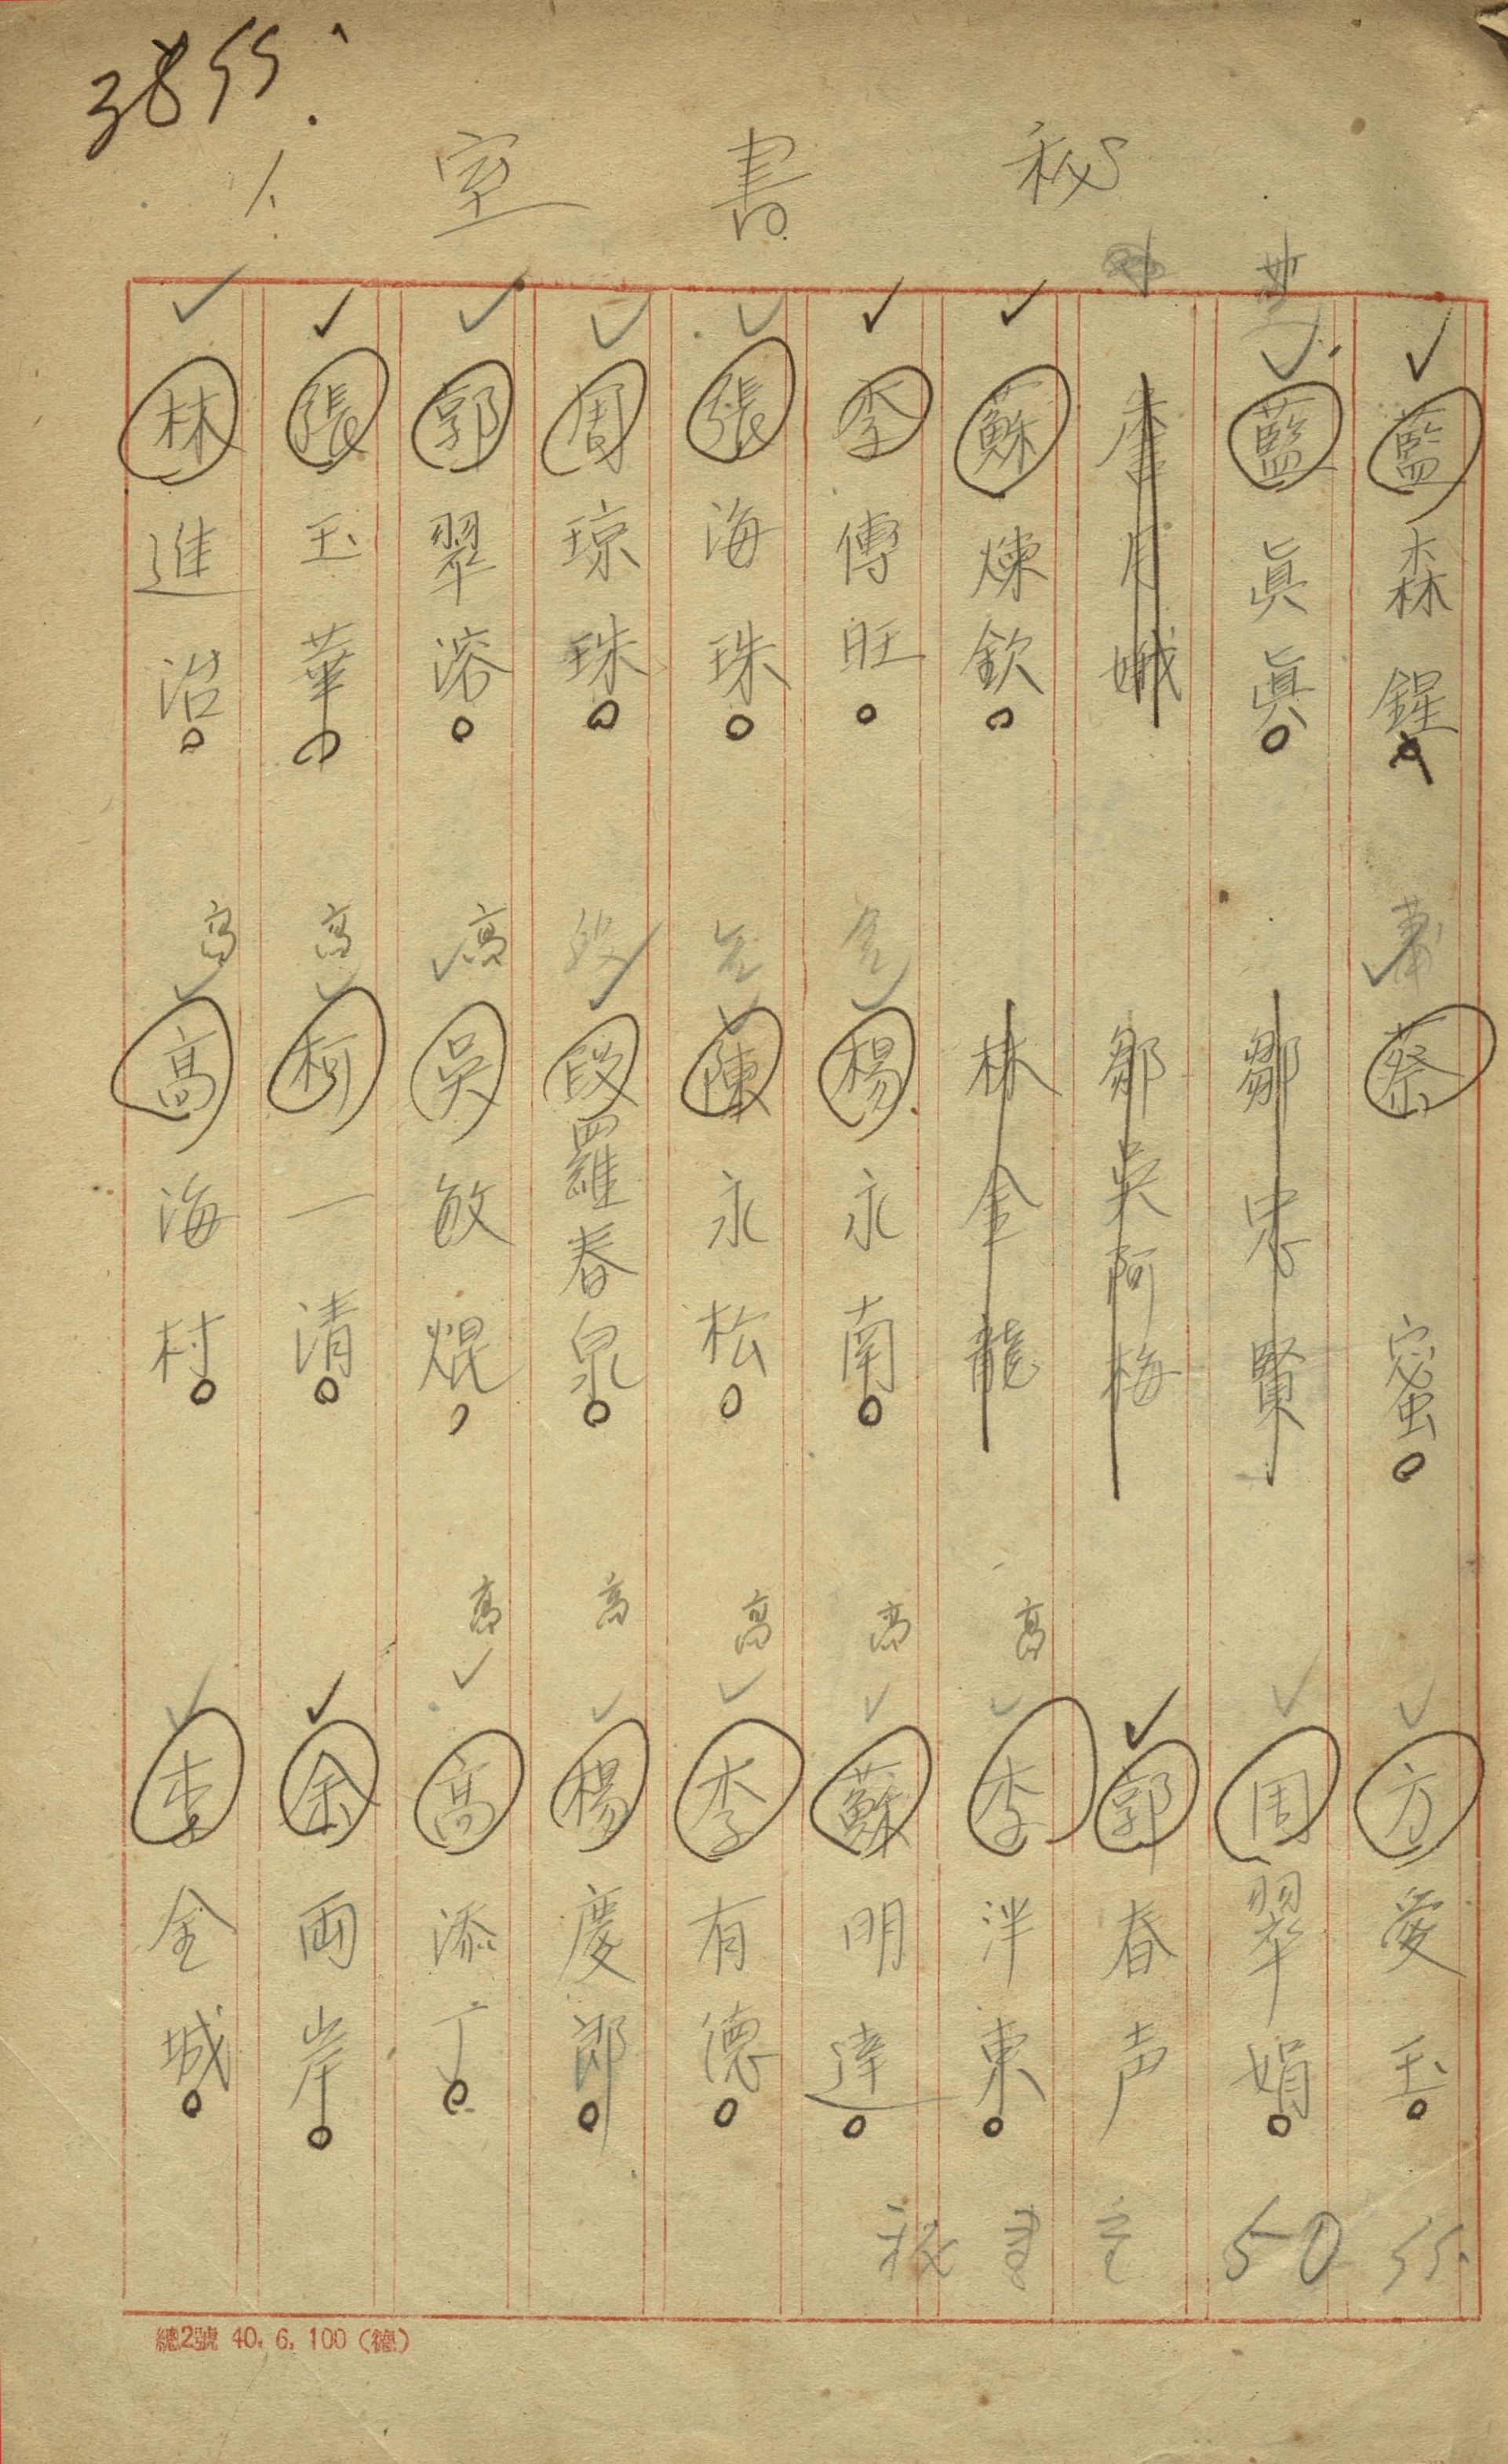 3855.
秘書室
1.
藍森鍟
藍眞眞
李月娥
蘇煉欽
李傳旺
張海珠
周琼珠
郭翠溶
張玉華
林進治
蔡蜜
鄒忠賢
鄒吳阿梅
林金龍
楊永南
陳永松
段 段羅春泉
高 吳敏焜
高 柯一清
高 高海村
方愛玉
周翠娟
郭春声
高 李泮東
高 蘇明達
高 李有德
高 楊慶郎
高 高添丁
余雨岸
李金城
秘書室 50 55.
總2號 40. 6. 100 (德)